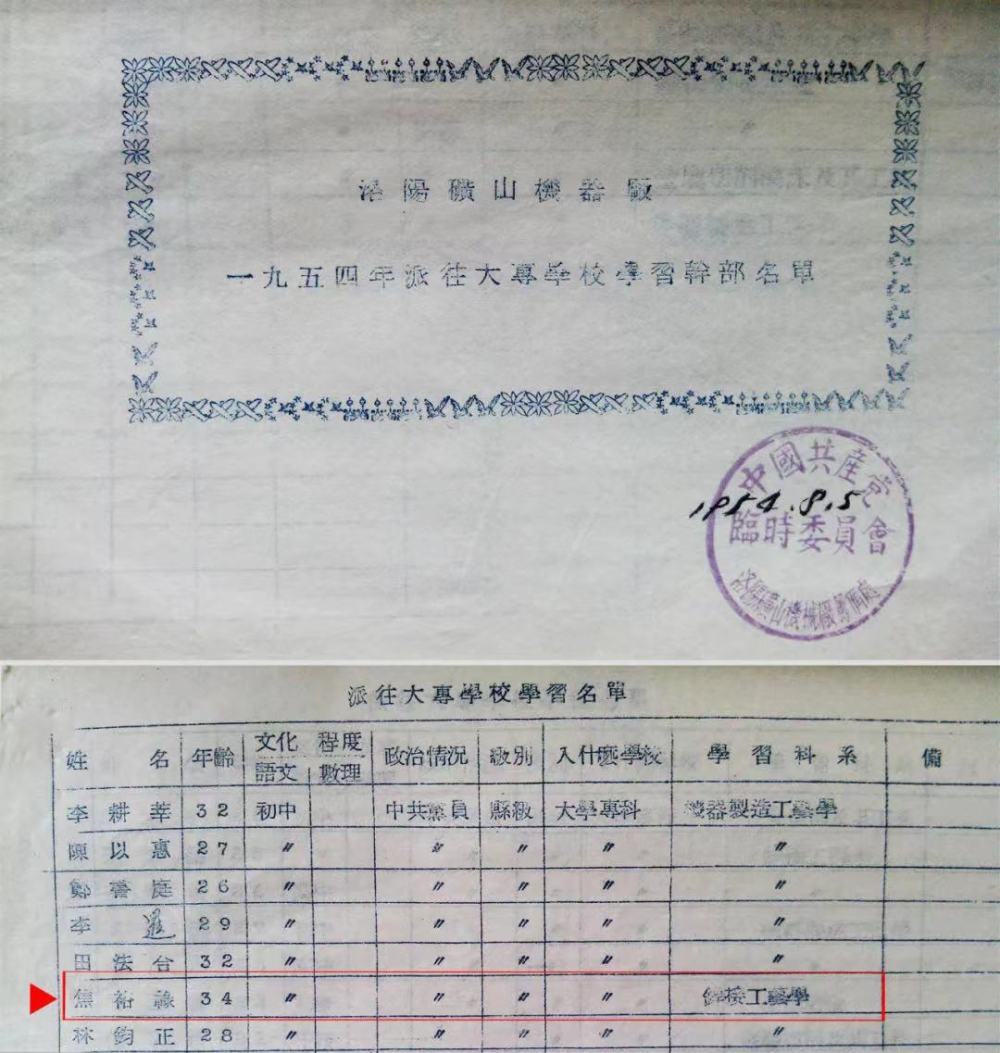 洛陽礦山機器廠
一九五四年派往大專學校學習幹部名單
中國共產党
1954.8.5
臨時委員會
洛陽礦山機械廠籌備處
派往大專學校學習名單
姓名 年齡 文化程度 政治情況 級別 入什麽學校 學習科系 備
語文 數理
李耕莘 32 初中 中共黨員 縣級 大學專科 機器製造工藝學
陳以惠 27 〃 〃 〃 〃 〃
鄭善庭 26 〃 〃 〃 〃 〃
李 29 〃 〃 〃 〃 〃
田法台 32 〃 〃 〃 〃 〃
焦裕祿 34 〃 〃 〃 〃 銲接工藝學
林鈞正 28 〃 〃 〃 〃 〃